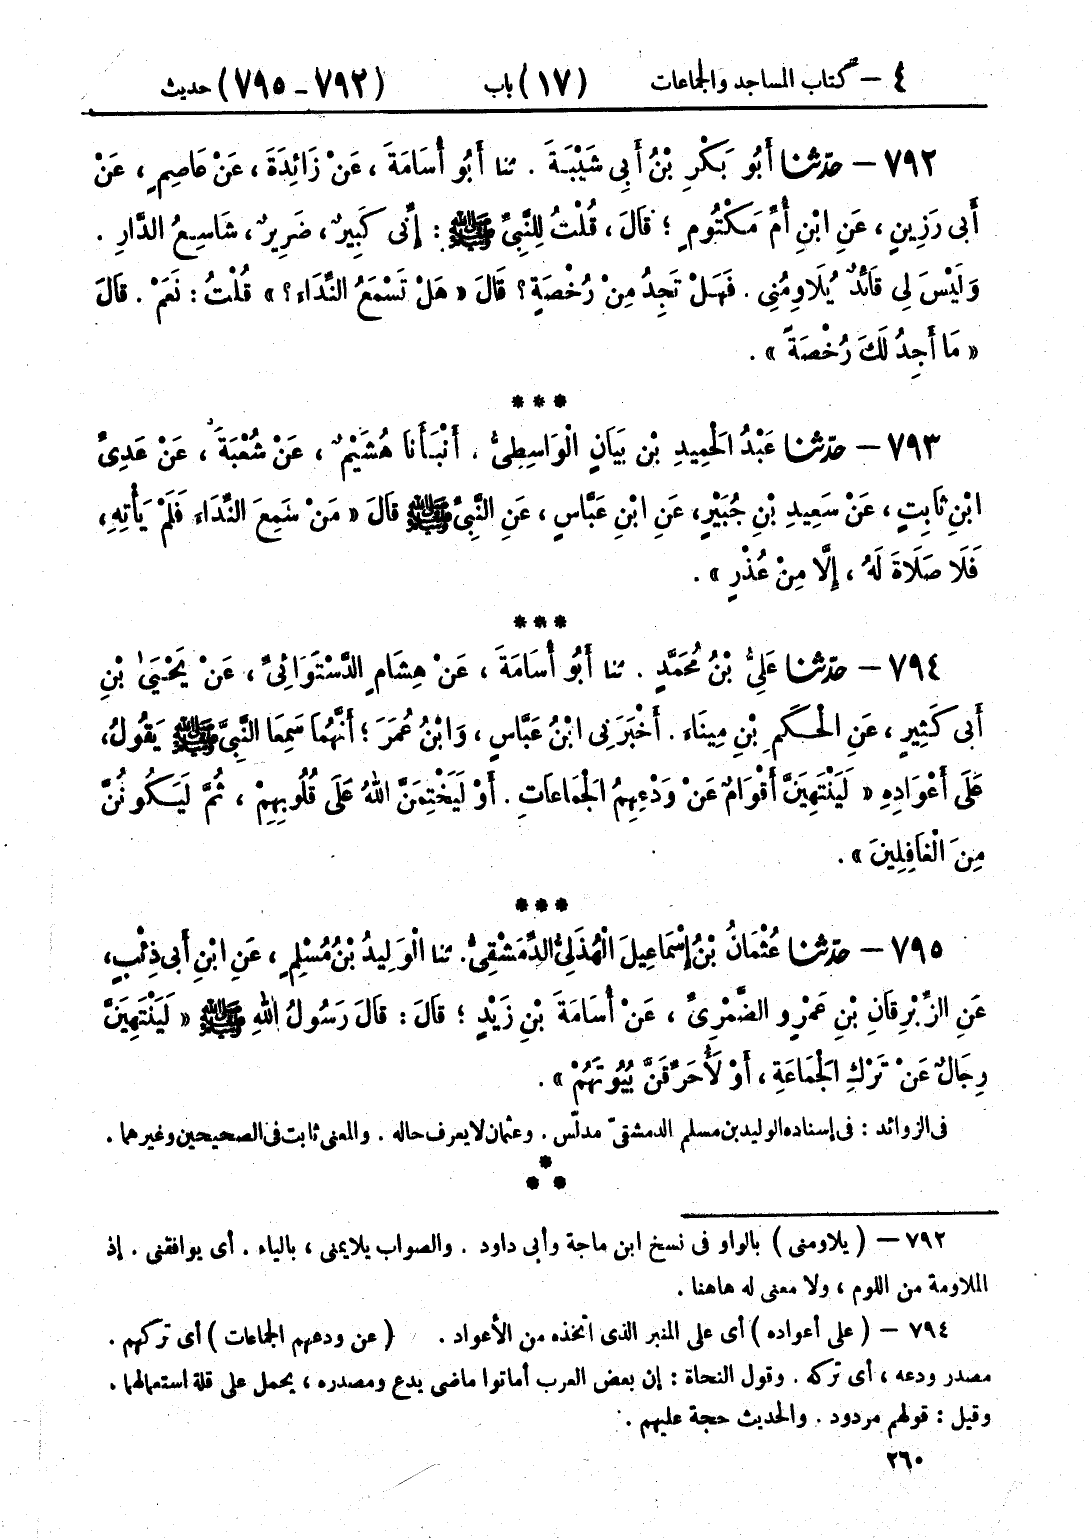 ٤ – كتاب المساجد والجماعات (١٧) باب (٧٩٢ – ٧٩٥) حديث
٧٩٢ – حدّثنا أَبُو بَكْرِ بْنُ أَبِي شَيْبَةَ . ثنا أَبُو أُسَامَةَ ، عَنْ زَائِدَةَ ، عَنْ عَاصِمٍ ، عَنْ
أَبِى رَزِينٍ ، عَنِ ابْنِ أُمِّ مَكْتُومٍ ؛ قَالَ ، قُلْتُ لِلنَّبِىِّ ﷺ : إِنِّى كَبِيرٌ ، ضَرِيرٌ ، شَاسِعُ الدَّارِ .
وَلَيْسَ لِى قَائِدٌ يُلَاوِمُنِى . فَهَلْ تَجِدُ مِنْ رُخْصَةٍ ؟ قَالَ « هَلْ تَسْمَعُ النِّدَاء ؟ » قُلْتُ : نَعَمْ . قَالَ
« مَا أَجِدُ لَكَ رُخْصَةً » .
***
٧٩٣ – حدّثنا عَبْدُ الْحَمِيدِ بْنِ بَيَانٍ الْوَاسِطِىُّ . أَنْبَأَنَا هُشَيْمٌ ، عَنْ شُعْبَةَ ، عَنْ عَدِىِّ
ابْنِ ثَابِتٍ ، عَنْ سَعِيدِ بْنِ جُبَيْرٍ ، عَنِ ابْنِ عَبَّاسٍ ، عَنِ النَّبِىِّ ﷺ قَالَ « مَنْ سَمِعَ النِّدَاء فَلَمْ يَأْتِهِ ،
فَلَا صَلَاةَ لَهُ ، إِلَّا مِنْ عُذْرٍ » .
***
٧٩٤ – حدّثنا عَلِىُّ بْنُ مُحَمَّدٍ . ثنا أَبُو أُسَامَةَ ، عَنْ هِشَامٍ الدَّسْتَوَائِىِّ ، عَنْ يَحْيَىٰ بْنِ
أَبِى كَثِيرٍ ، عَنِ الْحَكَمِ بْنِ مِينَاء . أَخْبَرَنِى ابْنُ عَبَّاسٍ ، وَابْنُ عُمَرَ ؛ أَنَّهُمَا سَمِعَا النَّبِىَّ ﷺ يَقُولُ ،
عَلَى أَعْوَادِهِ « لَيَنْتَهِيَنَّ أَقْوَامٌ عَنْ وَدْعِهِمُ الْجَمَاعَاتِ . أَوْ لَيَخْتِمَنَّ اللهُ عَلَى قُلُوبِهِمْ ، ثُمَّ لَيَكُونُنَّ
مِنَ الْغَافِلِينَ » .
***
٧٩٥ – حدّثنا عُثْمَانُ بْنُ إِسْمَاعِيلَ الْهُذَلِىُّ الدِّمَشْقِىُّ . ثنا الْوَلِيدُ بْنُ مُسْلِمٍ ، عَنِ ابْنِ أَبِى ذِئْبٍ ،
عَنِ الزِّبْرِقَانِ بْنِ عَمْرٍو الضَّمْرِىِّ ، عَنْ أُسَامَةَ بْنِ زَيْدٍ ؛ قَالَ : قَالَ رَسُولُ اللهِ ﷺ « لَيَنْتَهِيَنَّ
رِجَالٌ عَنْ تَرْكِ الْجَمَاعَةِ ، أَوْ لَأُحَرِّقَنَّ بُيُوتَهُمْ » .
فى الزوائد : فى إسناده الوليد بن مسلم الدمشقىّ مدلّس . وعثمان لا يعرف حاله . والمعنى ثابت فى الصحيحين وغيرهما .
***
٧٩٢ – ( يلاومنى ) بالواو فى نسخ ابن ماجة وأبى داود . والصواب يلايمنى ، بالياء . أى يوافقنى . إذ
الملاومة من اللوم ، ولا معنى له هاهنا .
٧٩٤ – ( على أعواده ) أى على المنبر الذى اتخذه من الأعواد . ( عن ودعهم الجماعات ) أى تركهم .
مصدر ودعه ، أى تركه . وقول النحاة : إن بعض العرب أماتوا ماضى يدع ومصدره ، يحمل على قلة استعمالهما .
وقيل : قولهم مردود . والحديث حجة عليهم .
٢٦٠